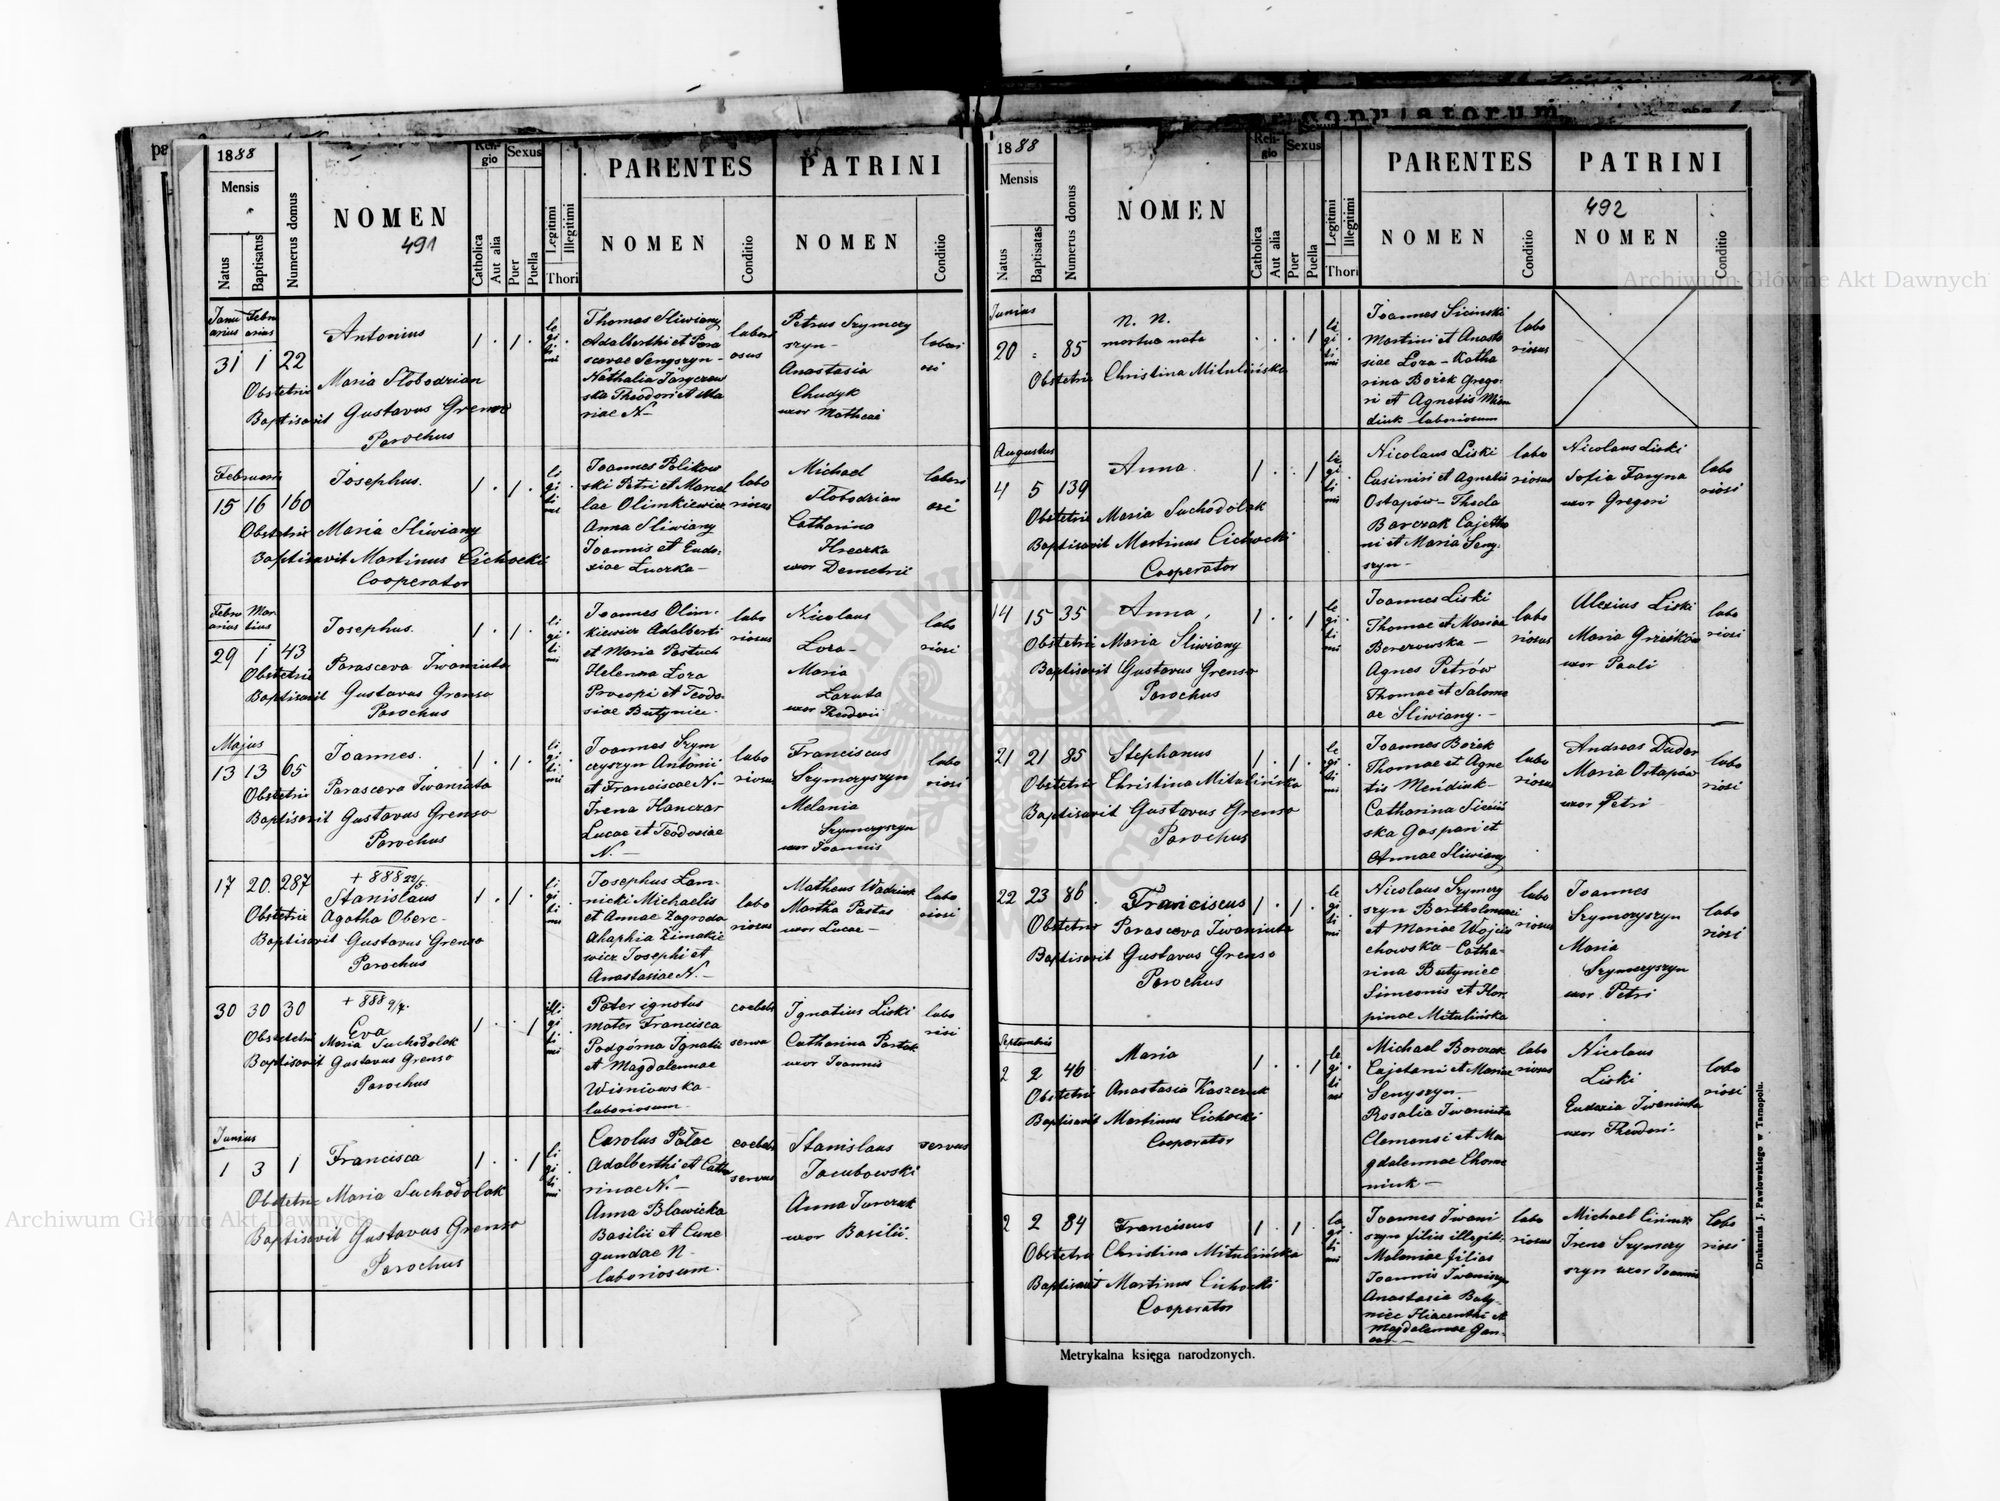 1888
Mensis
Natus
Baptisatus
Numerus domus
NOMEN
491
Religio
Catholica
Aut alia
Sexus
Puer
Puella
Legitimi
Illegitimi
Thori
PARENTES
NOMEN
Conditio
PATRINI
NOMEN
Conditio
Januarius Februarius
31 1 22
Antonius
Obstetrix Maria Słobodzian
Baptisavit Gustavus Grenso
Parochus
1 . 1 .
legitimi
Thomas Sliwiany
Adalberthi et Para
scevae Sengszyn -
Nathalia
sta Theodori et Ma
riae N -
labori
osus
Petrus Szymczy
szyn -
Anastasia
Chudyk
uxor Mathaei
labori
osi
Februarius
15 16 160
Josephus.
Obstetrix Maria Sliwiany
Baptisavit Martinus Cichocki
Cooperator
1 . 1 .
legitimi
Joannes Polikow
ski Petri et Marcel
lae Olimkiewicz
Anna Sliwiany
Joannis et Eudo-
xiae Luczka -
labo
riosus
Michael
Słobodzian
Catharina
Hreczka
uxor Demetrii
labori
osi
Februarius Martius
29 1 43
Josephus.
Obstetrix Parasceva Iwaniuta
Baptisavit Gustavus Grenso
Parochus
1 . 1 .
legitimi
Joannes Olim-
kiewicz Adalberti
et Maria Pastuch
Helenna Loza
Procopi et Teodo-
siae Butyniec.
labo
riosus
Nicolaus
Loza -
Maria
Lazuta
uxor Theodorii
labo
riosi
Majus
13 13 65
Joannes.
Obstetrix Parasceva Iwaniuta
Baptisavit Gustavus Grenso
Parochus
1 . 1 .
legitimi
Joannes Szym
czyszyn Antonii
et Franciscae N. -
Irena Hanczar
Lucae et Teodosiae
N. -
labo
riosus
Franciscus
Szymczyszyn
Melania
Szymczyszyn
uxor Joannis
labo
riosi
17 20. 287
+ 888 22/5.
Stanislaus
Obstetrix Agatha Oberc -
Baptisavit Gustavus Grenso
Parochus
1 . 1 .
legitimi
Josephus Lam-
nicki Michaelis
et Annae Zagroda
Ahaphia Zimakie
wicz Josephi et
Anastasiae N. -
labo
riosus
Matheus Wadziuk
Martha Pastas
uxor Lucae -
labo
riosi
30 30 30
+ 888 9/7.
Eva
Obstetrix Maria Suchodolak
Baptisavit Gustavus Grenso
Parochus
1 . . 1
illigitimi
Pater ignotus
mater Francisca
Podgórna Ignatii
et Magdalennae
Wisniowska -
laboriosum -
coelebs
serva
Ignatius Liski
Catharina
uxor Joannis
labo
riosi
Junius
1 3 1
Francisca
Obstetrix Maria Suchodolak
Baptisavit Gustavus Grenso
Parochus
1 . . 1
legitimi
Carolus Pałac
Adalberthi et Catha
rinae N. -
Anna Blawicka
Basilii et Cune
gundae N -
laboriosum.
coelebs
servus
Stanislaus
Jacubowski
Anna Jurczak
uxor Basilii.
servus
1888
Mensis
Natus
Baptisatas
Numerus domus
NOMEN
Religio
Catholica
Aut alia
Sexus
Puer
Puella
Legitimi
Illegitimi
Thori
PARENTES
NOMEN
Conditio
PATRINI
492
NOMEN
Conditio
Junius
20 - 85
N. N.
mortua nata
Obstetrix Christina Mitulińska
. . . 1
legitimi
Joannes Siciński
Martini et Anasta
siae Loza - Katha
rina Bożek Grego-
ri et Agnetis Mien
diuk laboriosum
labo
riosus
Augustus
4 5 139
Anna.
Obstetrix Maria Suchodolak
Baptisavit Martinus Cichocki
Cooperator
1 . . 1
legitimi
Nicolaus Liski
Casimiri et Agnetis
Ostapów - Thecla
Barczak Cajetha
ni et Maria Seny-
szyn -
labo
riosus
Nicolaus Liski
Sofia Faryna
uxor Gregori
labo
riosi
14 15 35
Anna,
Obstetrix Maria Sliwiany
Baptisavit Gustavus Grenso
Parochus
1 . . 1
legitimi
Joannes Liski
Thomae et Mariae
Berezowska -
Agnes Petrów
Thomae et Salome
ae Sliwiany. -
labo
riosus
Alexius Liski
Maria Grieśków
uxor Pauli
labo
riosi
21 21 85
Stephanus
Obstetrix Christina Mitulińska
Baptisavit Gustavus Grenso
Parochus
1 . 1 .
legitimi
Joannes Bożek
Thomae et Agne
tis Mendiuk -
Catharina Siciń
ska Gaspari et
Annae Sliwiany
labo
riosus
Andreas Dudar
Maria Ostapów
uxor Petri
labo
riosi
22 23 86
Franciscus
Obstetrix Parasceva Iwaniuta
Baptisavit Gustavus Grenso
Parochus
1 . 1 .
legitimi
Nicolaus Szymczy
szyn Bartholomaei
et Mariae Wojcie
chowska - Catha-
rina Butyniec
Simeonis et Hor
pinae Mitulińska
labo
riosus
Joannes
Szymczyszyn
Maria
Szymczyszyn
uxor Petri
labo
riosi
Septembris
2 2 46
Maria
Obstetrix Anastasia Kaszczuk
Baptisavit Martinus Cichocki
Cooperator
1 . . 1
legitimi
Michael Barczak
Cajetani et Mariae
Senyszyn -
Rosalia Iwaniuta
Clemensi et Ma
gdalennae Chome
niuk -
labo
riosus
Nicolaus
Liski
Eudoxia Iwaniuta
uxor Theodori -
labo
riosi
2 2 84
Franciscus
Obstetrix Christina Mitulińska
Baptisavit Martinus Cichocki
Cooperator
1 . 1 .
legitimi
Joannes Iwani
szyn filius illegit.
Melaniae filias
Joannis Iwaniszyn
Anastasia Buty-
niec Hiacenthi et
Magdalennae Gan-
labo
riosus
Michael
Irena Szymczy
szyn uxor Joannis
labo
riosi
Metrykalna księga narodzonych.
Drukarnia J. Pawłowskiego w Tarnopolu.
Archiwum Główne Akt Dawnych
Archiwum Główne Akt Dawnych